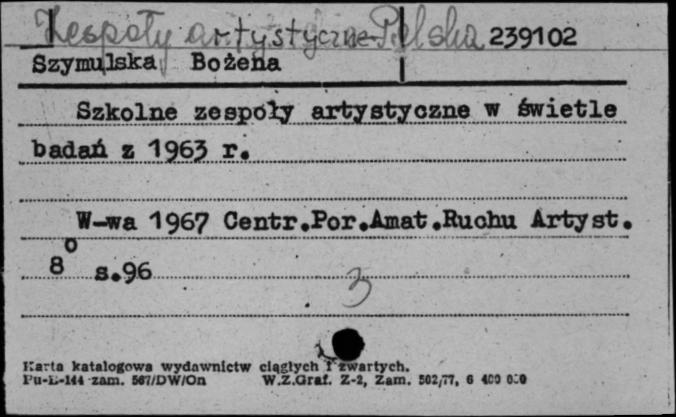 Zespoły artystyczne-Polska 239102
Szymulska Bożena
Szkolne zespoły artystyczne w świetle
badań z 1963 r.
W-wa 1967 Centr.Por.Amat.Ruchu Artyst.
8° s.96
3
Karta katalogowa wydawnictw ciągłych i zwartych.
Pu-K-144 zam. 567/DW/On W.Z.Graf. Z-2, Zam. 502/77, 6 400 000